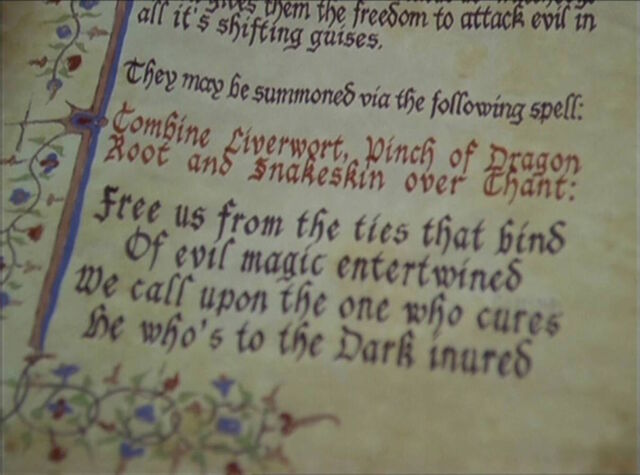 gives them the freedom to attack evil in
all it's shifting guises.
They may be summoned via the following spell:
Combine Liverwort, Pinch of Dragon
Root and Snakeskin over Chant:
Free us from the ties that bind
Of evil magic entertwined
We call upon the one who cures
He who's to the Dark inured